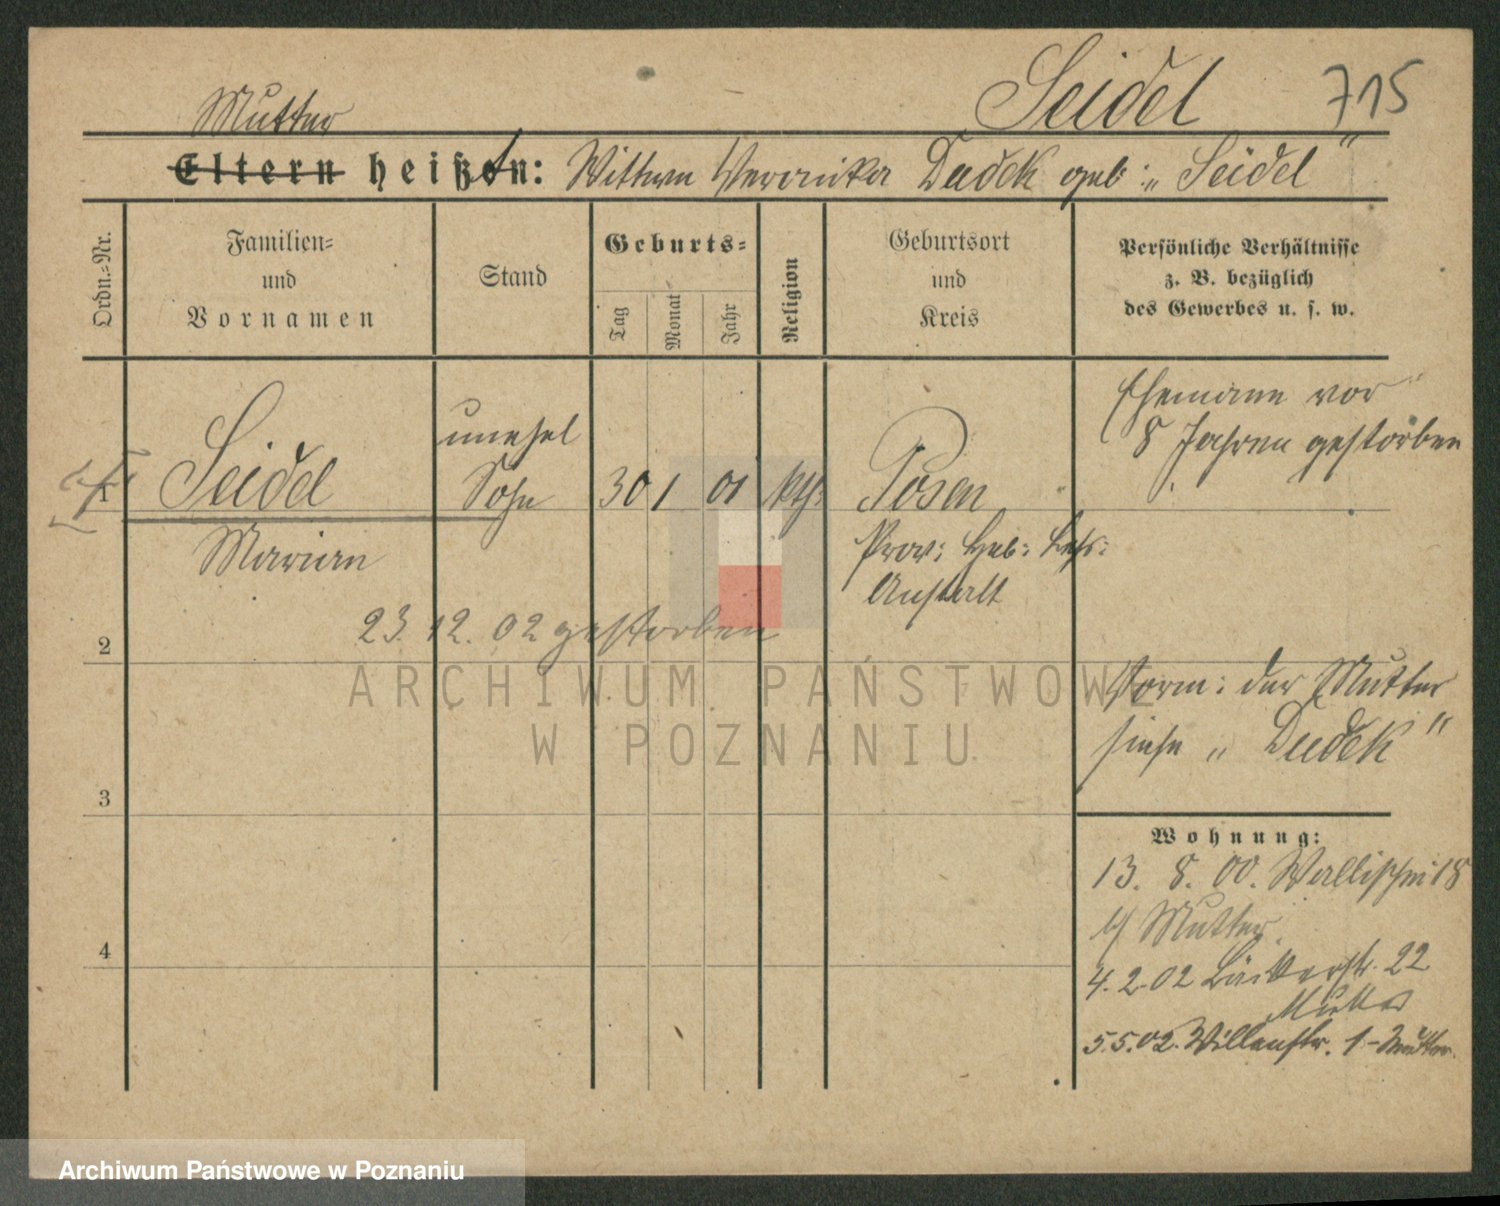 Seidel 715
Mutter
Eltern heißen: Wittwe Veronika Dudek geb: „Seidel“
Ordn.=Nr.
Familien=
und
Vornamen
Stand
Geburts=
Tag
Monat
Jahr
Religion
Geburtsort
und
Kreis
Persönliche Verhältnisse
z. B. bezüglich
des Gewerbes u. s. w.
1
Seidel
Marian
unehel
Sohn
30 1 01 kth:
Posen
Prov: Heb: Lehr:
Anstalt
Ehemann vor
8 Jahren gestorben
23. 12. 02 gestorben
2
ARCHIWUM PAŃSTWOWE
W POZNANIU
Vorm: der Mutter
siehe „Dudek“
3
Wohnung:
13. 8. 00. Wallischei 18
b/ Mutter
4
4. 2. 02 Bäckerstr. 22
Mutter
5.5.02. Villenstr. 1 - Mutter.
Archiwum Państwowe w Poznaniu